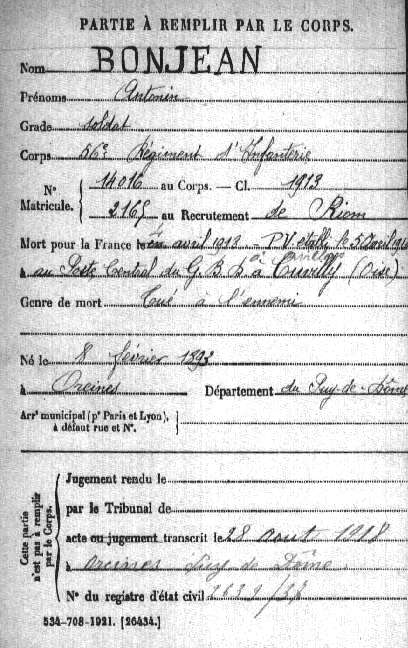 PARTIE À REMPLIR PAR LE CORPS.
Nom BONJEAN
Prénoms Antonin
Grade soldat
Corps 56e Régiment d'Infanterie
N° 14016 au Corps. — Cl. 1913
Matricule. 2165 au Recrutement de Riom
Mort pour la France le en avril 1913 P.V. établi le 5 avril
à au Poste Central du G.B.D. à Cuvilly (Oise)
Genre de mort Tué à l'ennemi
Né le 8 février 1893
à Orcines Département du Puy-de-Dôme
Arrt municipal (pr Paris et Lyon),
à défaut rue et N°.
Cette partie n'est pas à remplir par le Corps.
Jugement rendu le
par le Tribunal de
acte ou jugement transcrit le 28 août 1918
à Orcines Puy de Dôme
N° du registre d'état civil
534-708-1921. [26434.]